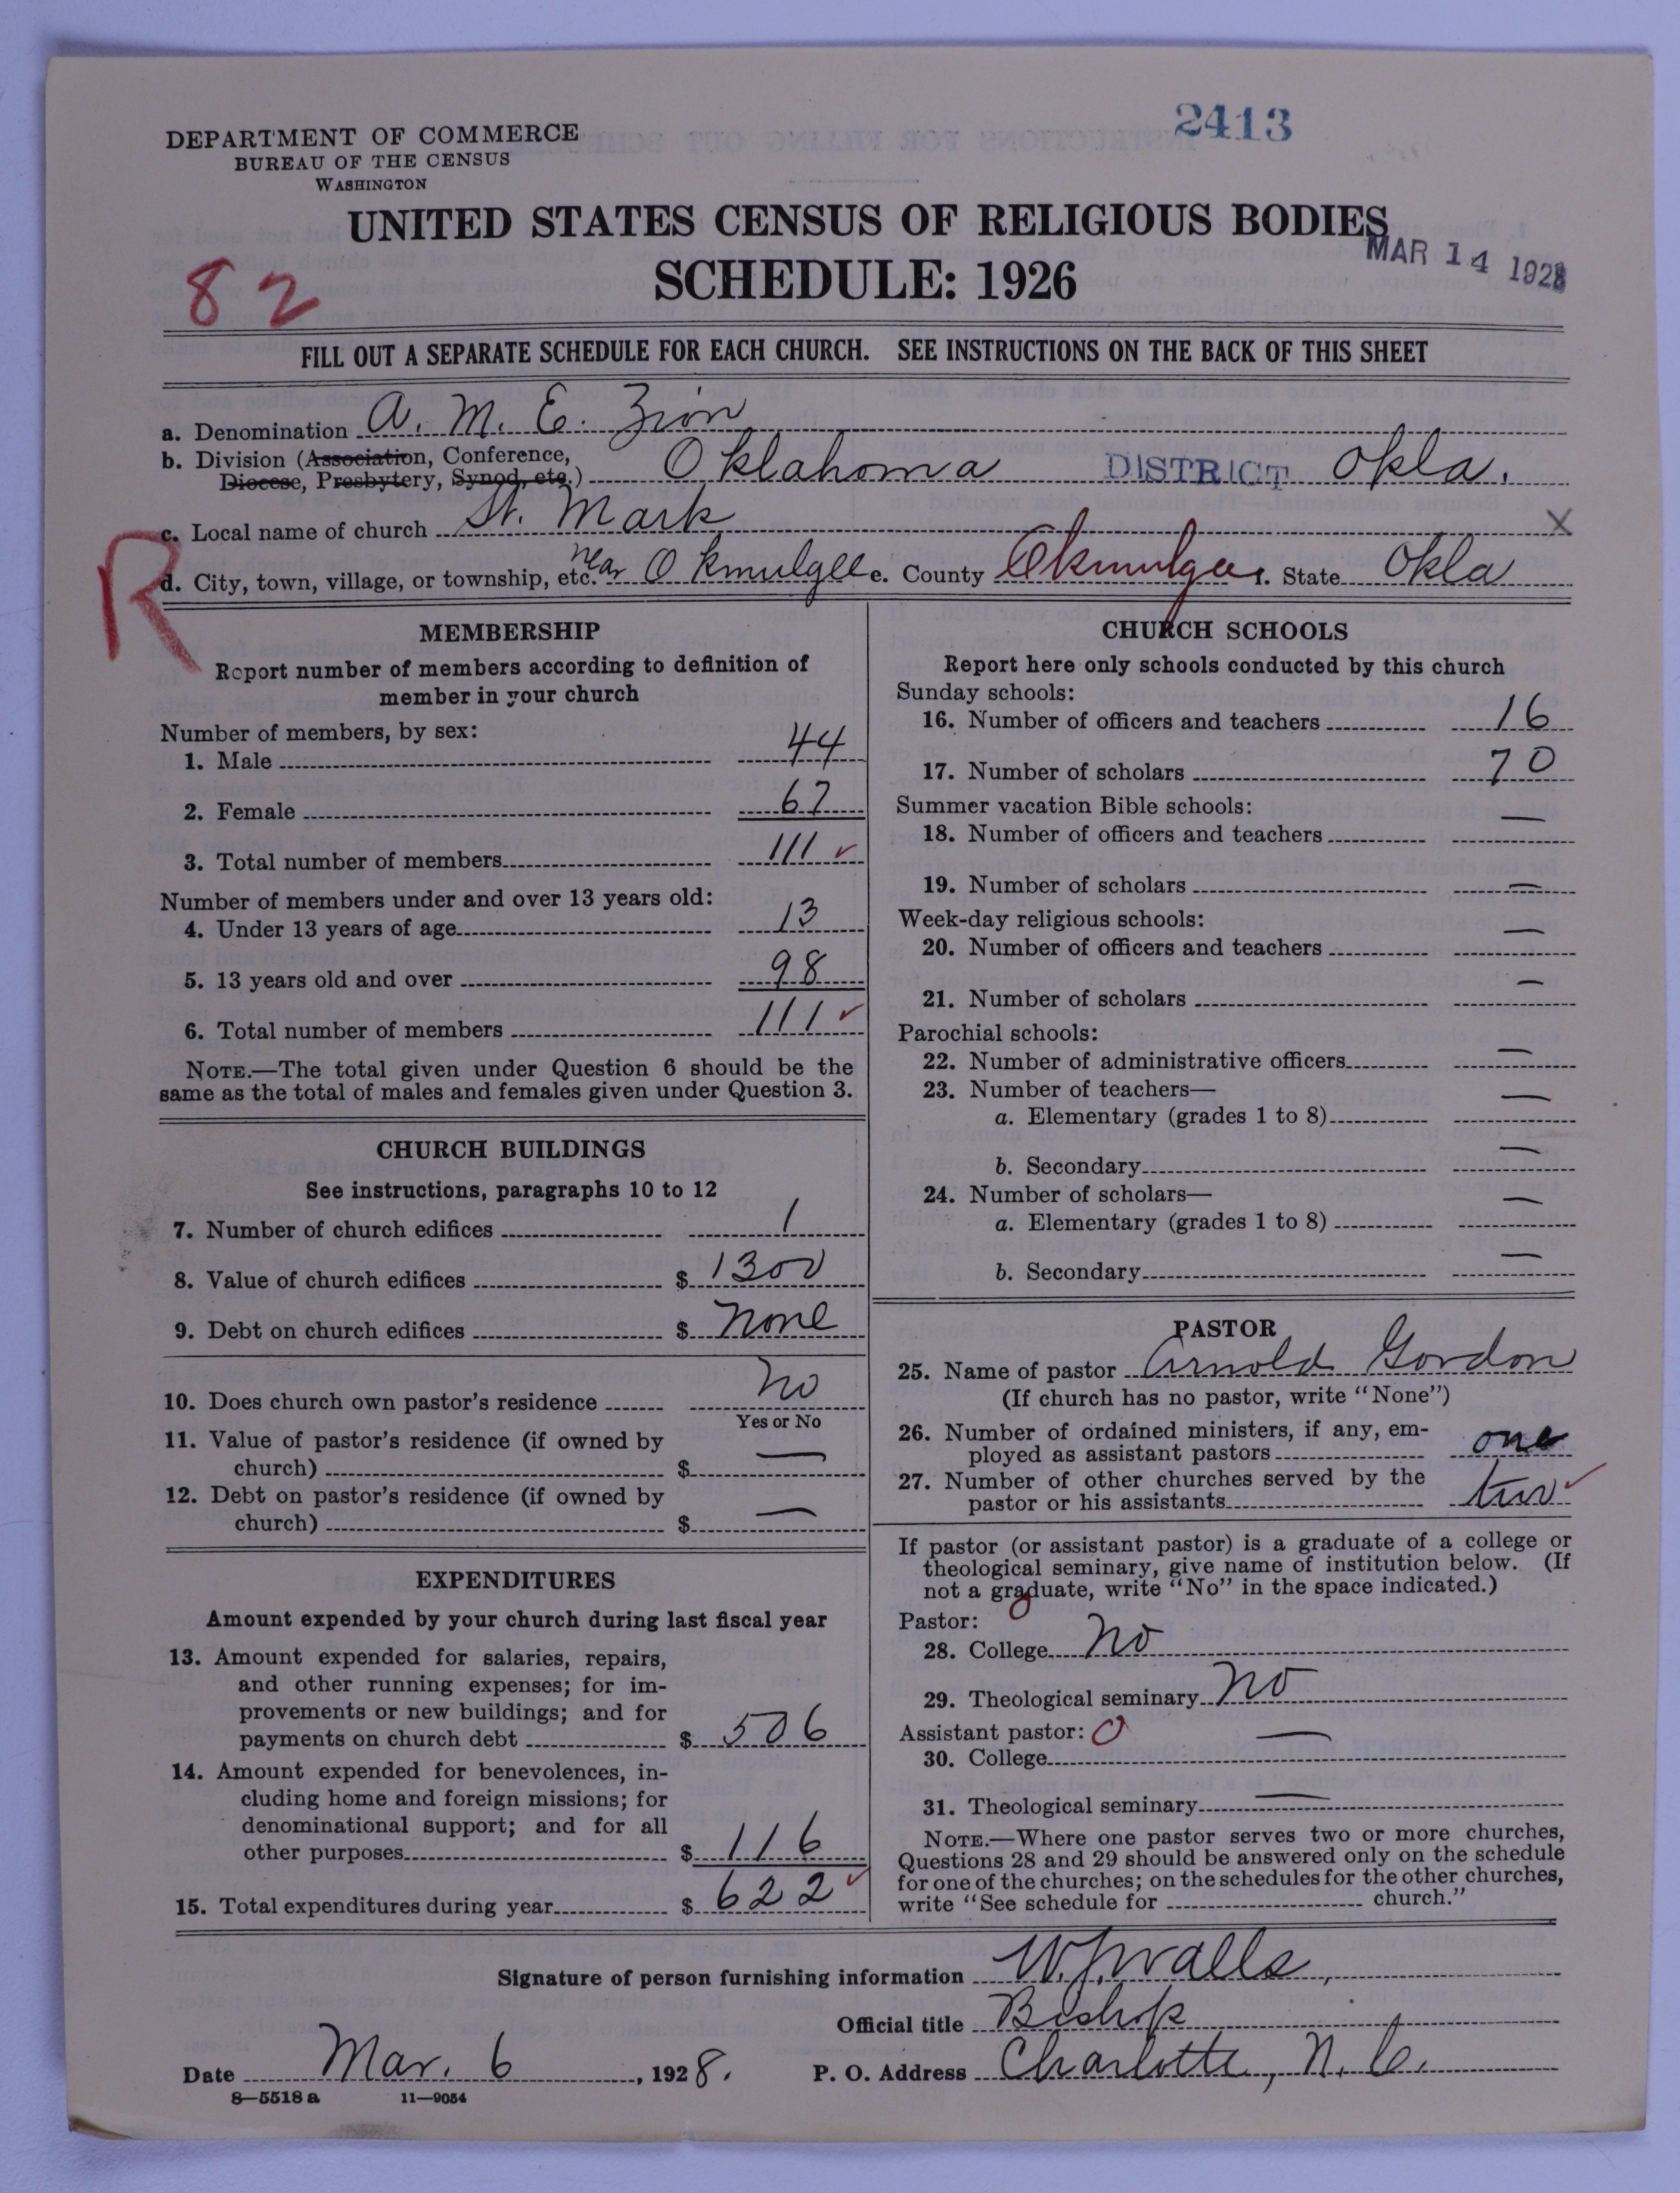 2413
DEPARTMENT OF COMMERCE
BUREAU OF THE CENSUS
WASHINGTON
UNITED STATES CENSUS OF RELIGIOUS BODIES
MAR 14 1928
SCHEDULE: 1926
82
FILL OUT A SEPARATE SCHEDULE FOR EACH CHURCH. SEE INSTRUCTIONS ON THE BACK OF THIS SHEET
a. Denomination A. M. E. Zion
b. Division (Association, Conference,
Diocese, Presbytery, Synod, etc.) Oklahoma DISTRICT Okla.
c. Local name of church St. Mark X
R
d. City, town, village, or township, etc. near Okmulgee e. County Okmulgee f. State Okla
MEMBERSHIP
Report number of members according to definition of
member in your church
Number of members, by sex:
1. Male 44
2. Female 67
3. Total number of members 111 ✓
Number of members under and over 13 years old:
4. Under 13 years of age 13
5. 13 years old and over 98
6. Total number of members 111 ✓
NOTE.—The total given under Question 6 should be the
same as the total of males and females given under Question 3.
CHURCH BUILDINGS
See instructions, paragraphs 10 to 12
7. Number of church edifices 1
8. Value of church edifices $ 1300
9. Debt on church edifices $ None
10. Does church own pastor's residence No
Yes or No
11. Value of pastor's residence (if owned by
church) $ —
12. Debt on pastor's residence (if owned by
church) $ —
EXPENDITURES
Amount expended by your church during last fiscal year
13. Amount expended for salaries, repairs,
and other running expenses; for im-
provements or new buildings; and for
payments on church debt $ 506
14. Amount expended for benevolences, in-
cluding home and foreign missions; for
denominational support; and for all
other purposes $ 116
15. Total expenditures during year $ 622 ✓
CHURCH SCHOOLS
Report here only schools conducted by this church
Sunday schools:
16. Number of officers and teachers 16
17. Number of scholars 70
Summer vacation Bible schools:
18. Number of officers and teachers —
19. Number of scholars —
Week-day religious schools:
20. Number of officers and teachers —
21. Number of scholars —
Parochial schools:
22. Number of administrative officers —
23. Number of teachers—
a. Elementary (grades 1 to 8) —
b. Secondary —
24. Number of scholars—
a. Elementary (grades 1 to 8) —
b. Secondary —
PASTOR
25. Name of pastor Arnold Gordon
(If church has no pastor, write "None")
26. Number of ordained ministers, if any, em-
ployed as assistant pastors one
27. Number of other churches served by the
pastor or his assistants two ✓
If pastor (or assistant pastor) is a graduate of a college or
theological seminary, give name of institution below. (If
not a graduate, write "No" in the space indicated.)
Pastor: 0
28. College No
29. Theological seminary No
Assistant pastor: 0
30. College —
31. Theological seminary —
NOTE.—Where one pastor serves two or more churches,
Questions 28 and 29 should be answered only on the schedule
for one of the churches; on the schedules for the other churches,
write "See schedule for church."
Signature of person furnishing information W. J. Walls,
Official title Bishop
Date Mar. 6, 1928. P. O. Address Charlotte, N. C.
8—5518 a 11—9054